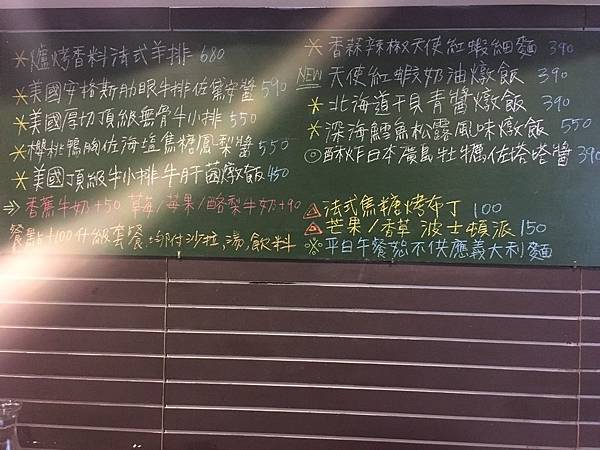 * 爐烤香料法式羊排 680
* 美國安格斯肋眼牛排佐黛安醬 590
* 美國厚切頂級無骨牛小排 550
* 櫻桃鴨胸佐海鹽焦糖鳳梨醬 550
* 美國頂級牛小排牛肝菌燉飯 450
⇒ 香蕉牛奶+50 草莓/芒果/酪梨牛奶+90
餐點+100升級套餐:內附沙拉,湯,飲料
* 香蒜辣椒天使紅蝦細麵 390
NEW 天使紅蝦奶油燉飯 390
* 北海道干貝青醬燉飯 390
* 深海鱈魚松露風味燉飯 550
◎酥炸日本廣島牡蠣佐塔塔醬 390
△法式焦糖烤布丁 100
△芒果/香草 波士頓派 150
※平日午餐恕不供應義大利麵